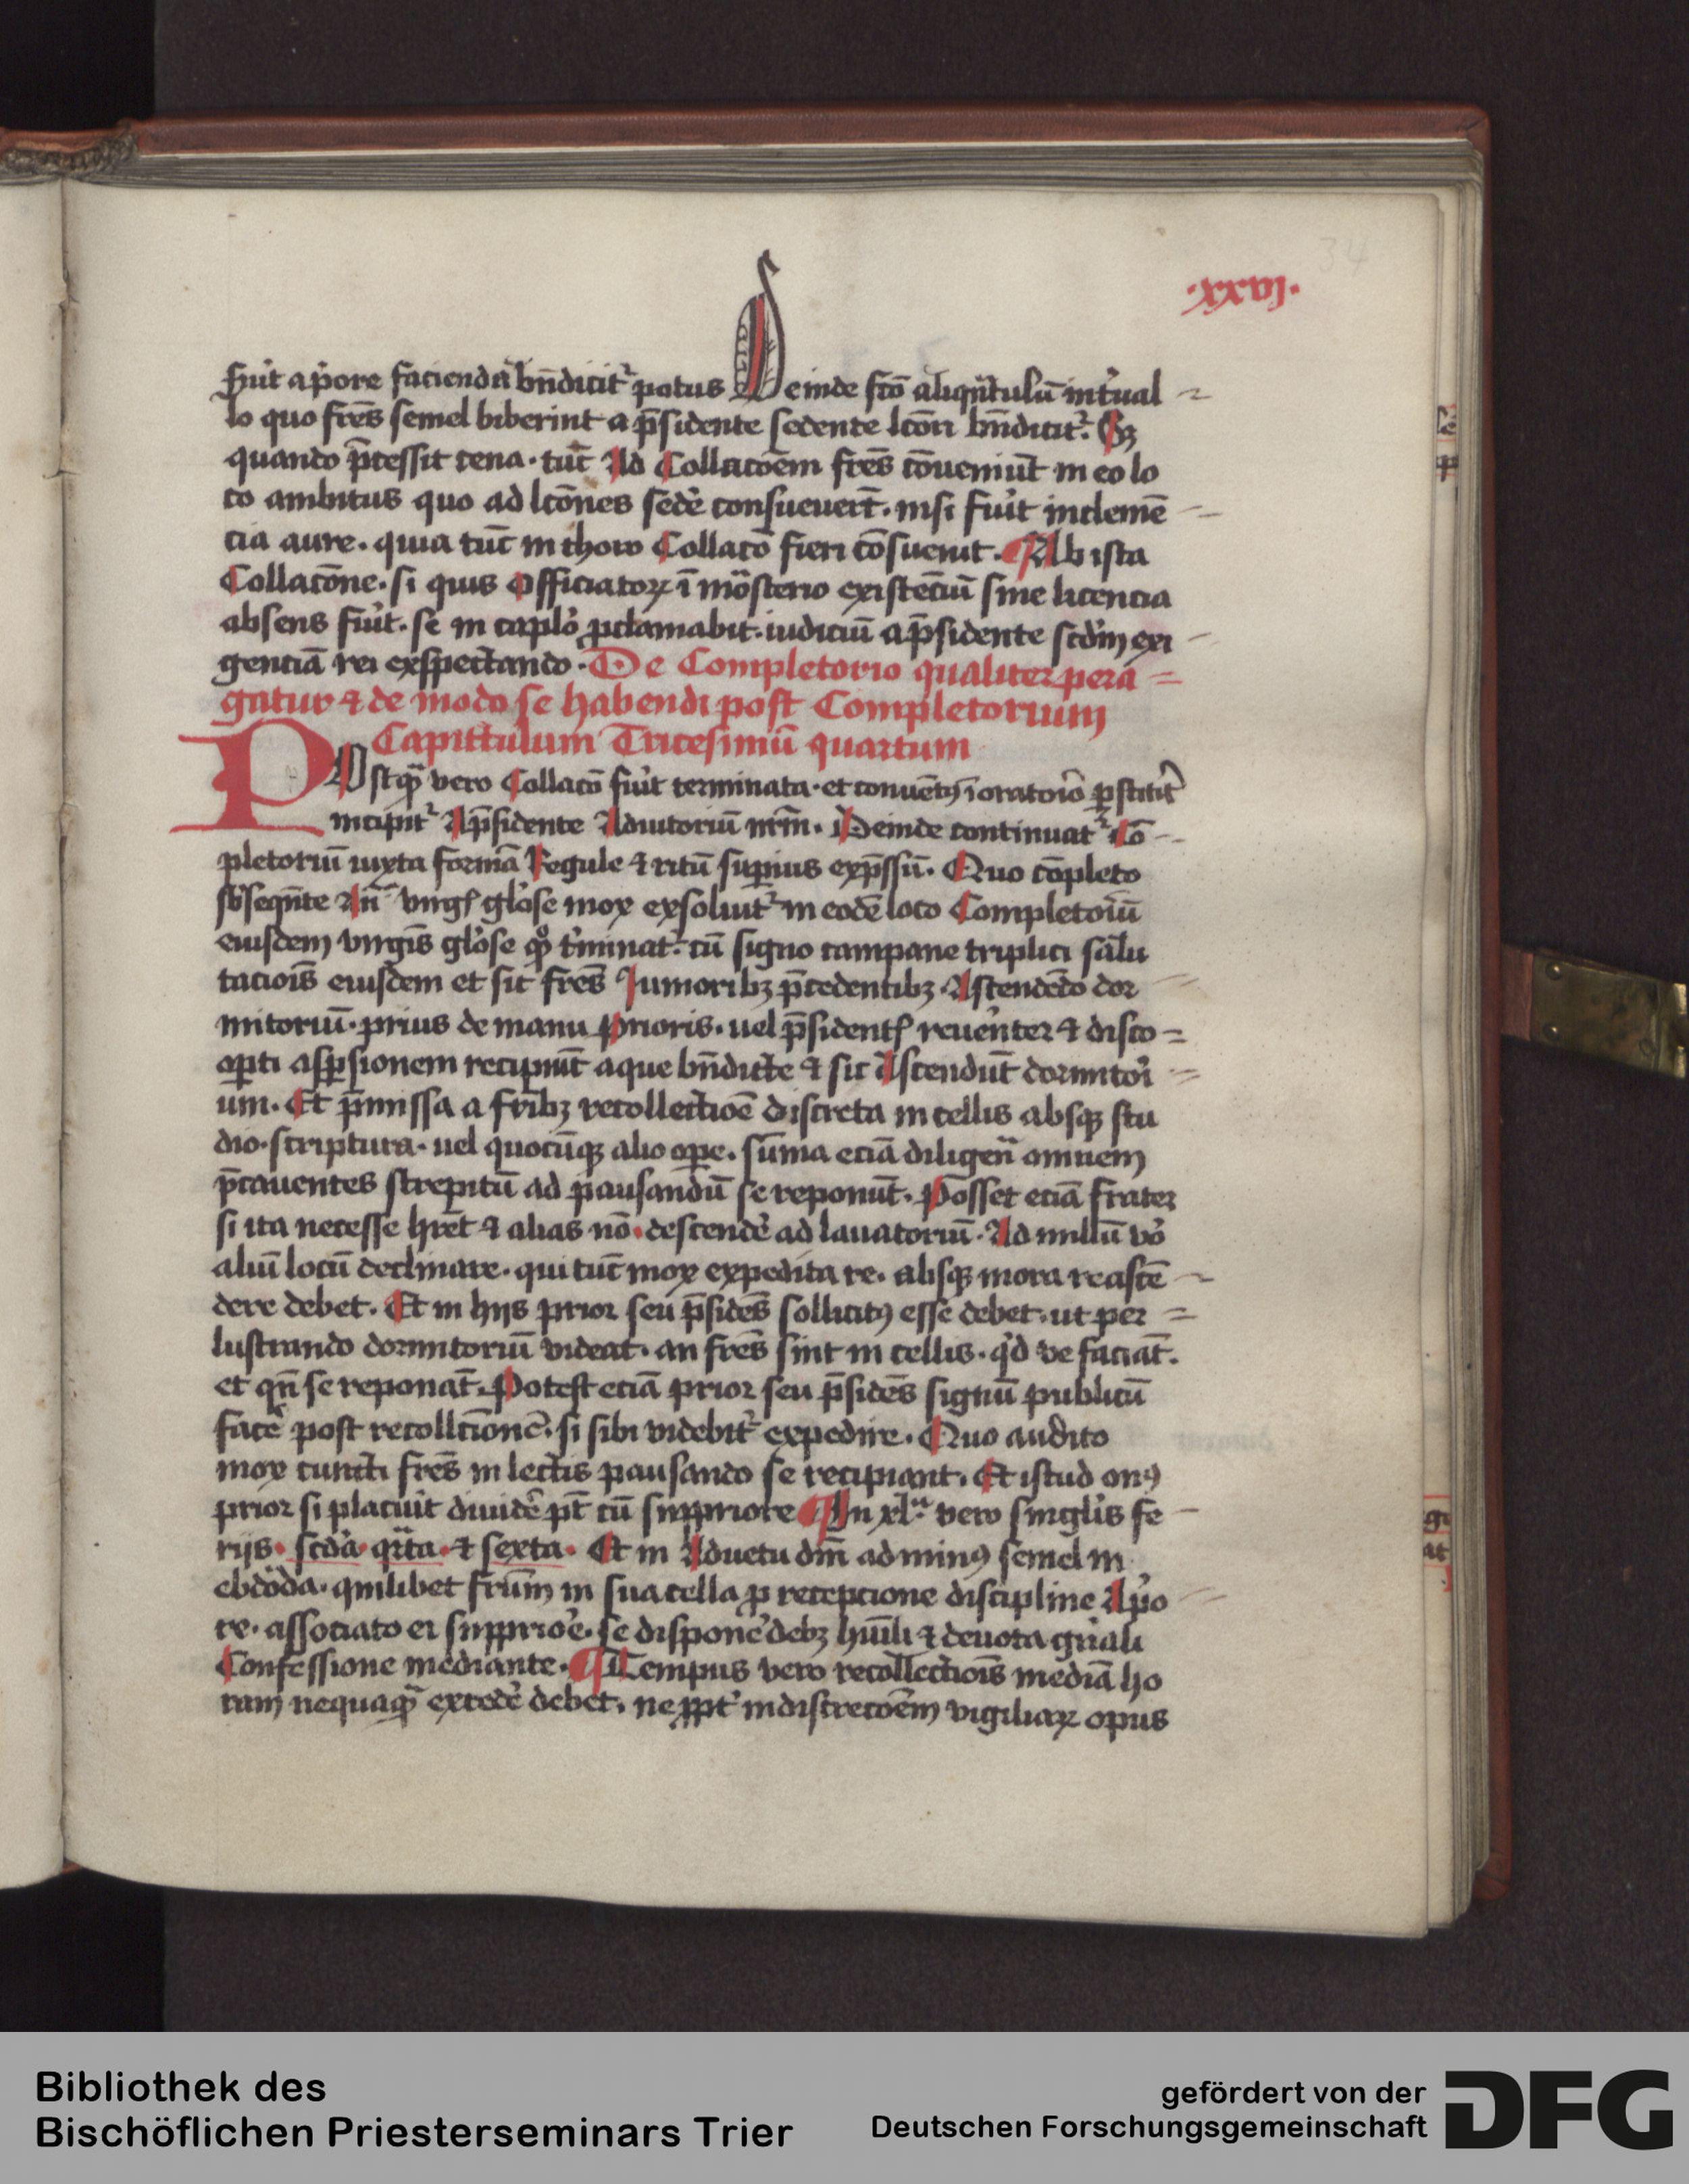 34
·xxvj·
fuit a p̄ore faciendā bn̄dicit᷑ potus Deinde fc̄o aliqn̄tulū int̄ual
lo quo frēs semel biberint a p̄sidente sedente lc̄ori bn̄dicit᷑. Sꝫ
quando p̄cessit cena · tūc Ad Collacōem frēs cōueniūt in eo lo
co ambitus quo ad lc̄ones sedē consueuerūt. nisi fūit inclemē
cia aure. quia tūc in choro Collacō fieri cōsueuit. Ab ista
Collacōne. si quis Officiatorꝝ ī mōsterio existēciū sine licencia
absens fūit. se in caplo ꝓclamabit. iudiciū a p̄sidente scd̄m exi
genciā rei exspectando. De Completorio qualiter pera
gatur ⁊ de modo se habendi post Completorium
Capittulum Tricesimū quartum
POstꝙ̄ vero Collacō fūit terminata · et conuentꝰ ī oratorio ꝑstitīt
incipit᷑ A p̄sidente Adiutoriū nr̄m. Deinde continuat᷑ Cō
pletoriū iuxta formā Regule ⁊ ritū suꝑius exp̄ssū. Quo cōpleto
sb̄seqn̄te Añ virgīs glōse mox exsoluit᷑ in eodē loco Completoriū
eiusdem virgīs glōse qͦ t̄minat᷑. cū signo campane triplici salu
tacioīs eiusdem et sic frēs Iunioribꝫ p̄cedentibꝫ Ascendēdo dor
mitoriū. prius de manu Prioris. uel p̄sidentꝭ reuēnter ⁊ disco
oꝑti asꝑsionem recipiūt aque bn̄dicte ⁊ sic Ascendūt dormitori
um. Et p̄missa a fr̄ibꝫ recollectioē discreta in cellis absqꝫ stu
dio. scriptura. uel quocūqꝫ alio oꝑe. sūma eciā diligen̄ omnem
p̄cauentes strepitū ad pausandū se reponūt. Posset eciā frater
si ita necesse hret ⁊ alias nō. descendē ad lauatoriū. Ad nullū vō
aliū locū declinare. qui tūc mox expedita re. absqꝫ mora reascē
dere debet. Et in hijs prior seu p̄sidēs sollicitꝰ esse debet. ut per
lustrando dormitoriū videat. an frēs sint in cellis. qͥd ve faciāt.
et qn̄ se reponāt. Potest eciā prior seu p̄sidēs signū publicū
facē post recollc̄ionē. si sibi videbit᷑ expedire. Quo audito
mox cuncti frēs in lectis pausando se recipiant. Et istud onꝰ
prior si placuīt diuidē pt̄ cū suppriore In xlᵃ vero singlīs fe
rijs. scdā. qrta. ⁊ sexta. Et in Aduetu dn̄i ad minꝰ semel in
ebdōda. quilibet frūm in sua cella ꝑ recepcione discipline A p̄o
re. associato ei suppriōe. se disponē debꝫ hūili ⁊ deuota gn̄ali
Confessione mediante. Tempus vero recollectioīs mediā ho
ram nequaꝙ̄ excedē debet. ne ꝓpt̄ indiscrecōem vigiliaꝝ opus
Bibliothek des
Bischöflichen Priesterseminars Trier
gefördert von der
Deutschen Forschungsgemeinschaft
DFG